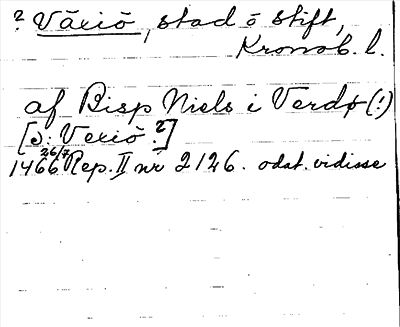 ? Växiö, stad o stift,
Kronob. l.
af Bisp Niels i Verdø (!)
[ɔ: Vexiö?]
1466 26/7 Rep. II nr 2126. odat. vidisse